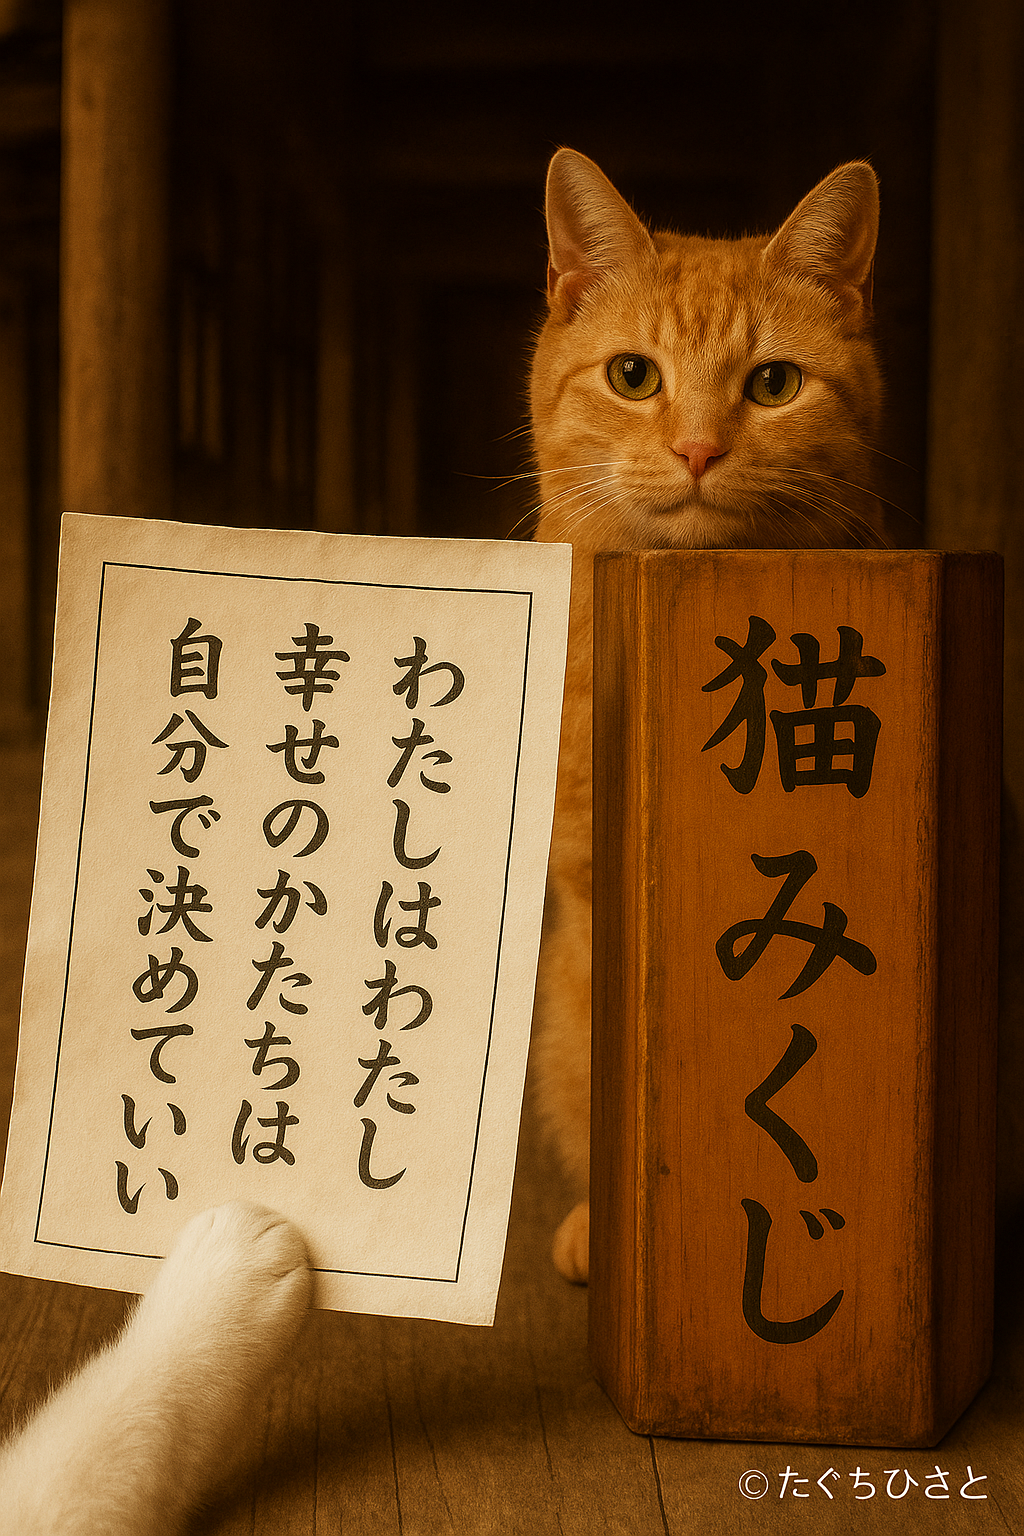 わたしはわたし
幸せのかたちは
自分で決めていい
猫みくじ
©たぐちひさと